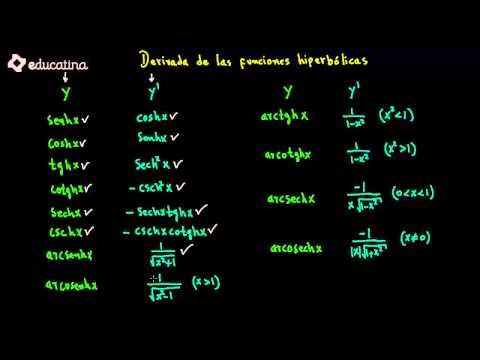 educatina
Derivada de las funciones hiperbólicas
y y'
senhx ✓ coshx ✓
coshx ✓ senhx ✓
tghx ✓ sech²x ✓
cotghx ✓ -csch²x ✓
sechx ✓ -sechxtghx ✓
cschx ✓ -cschxcotghx ✓
arcsenhx 1/√(x²+1) ✓
arcosenhx 1/√(x²-1) (x>1)
y y'
arctghx 1/(1-x²) (x²<1)
arcotghx 1/(1-x²) (x²>1)
arcsechx -1/(x√(1-x²)) (0<x<1)
arcosechx -1/(|x|√(1+x²)) (x≠0)